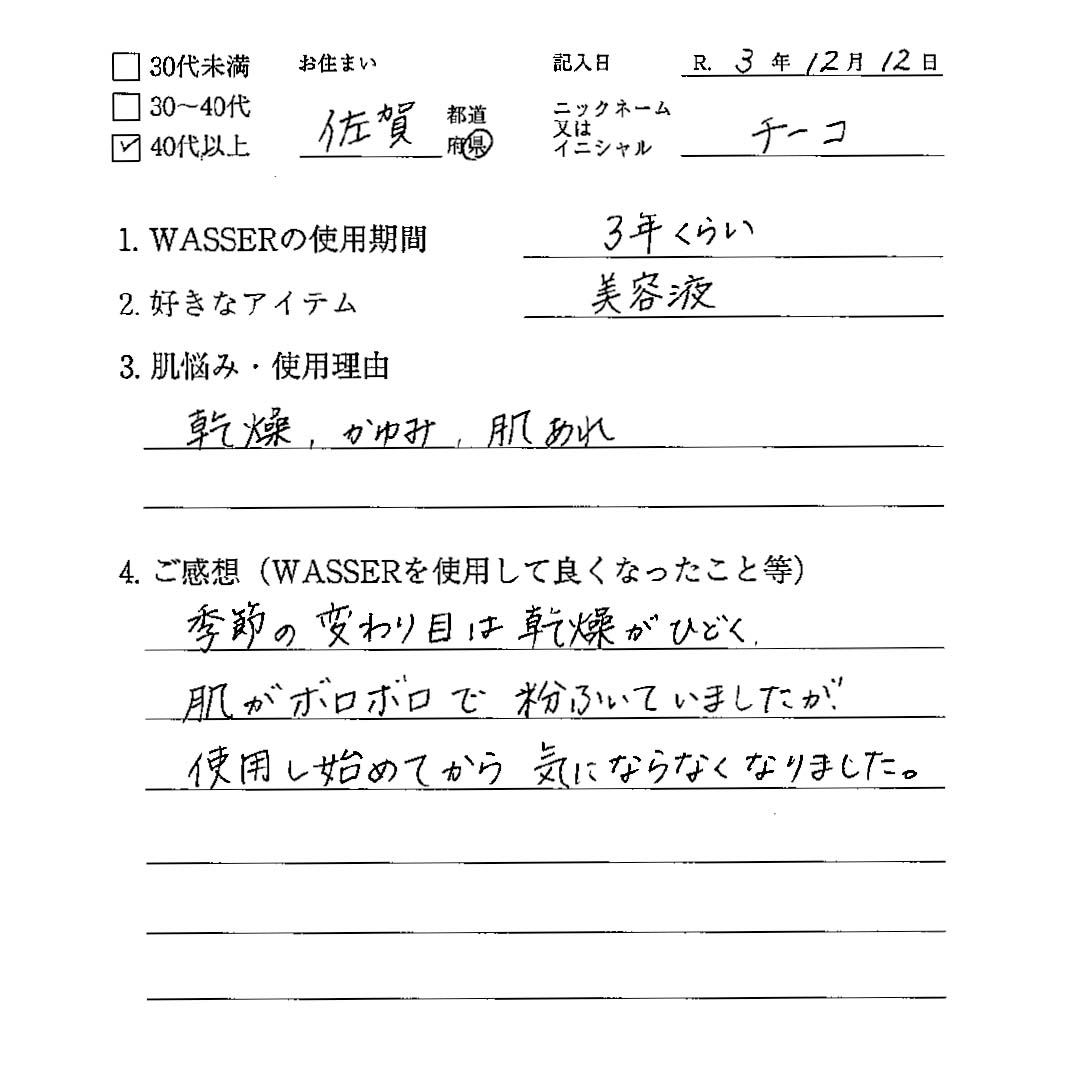 □ 30代未満 お住まい 記入日 R. 3 年 12 月 12 日
□ 30〜40代 佐賀 都道府県 ニックネーム又はイニシャル チーコ
☑ 40代以上
1. WASSERの使用期間 3年くらい
2. 好きなアイテム 美容液
3. 肌悩み・使用理由
乾燥、かゆみ、肌あれ
4. ご感想（WASSERを使用して良くなったこと等）
季節の変わり目は乾燥がひどく、
肌がボロボロで粉ふいていましたが、
使用し始めてから気にならなくなりました。